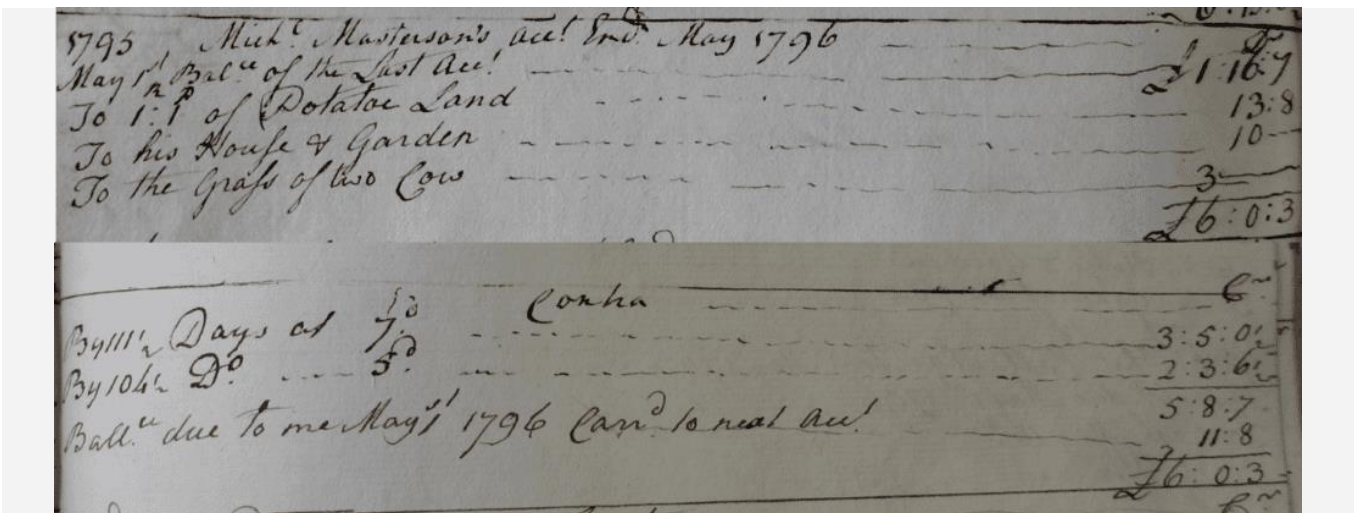 1795, Mich.l Masterson's acc.t End.d May 1796 Dr
May 1st Bal.ce of the Last Acc.t £1:16:7
To 1:½ P of Potatoe Land 13:8
To his House & Garden 10
To the Grass of two Cow 3
£6:0:3
Contra Cr
By 111½ Days at 7d 3:5:0½
By 104½ Do 5d 2:3:6½
5:8:7
Ball.ce due to me May 1st 1796 Carr.d to next acc.t 11:8
£6:0:3
Cr